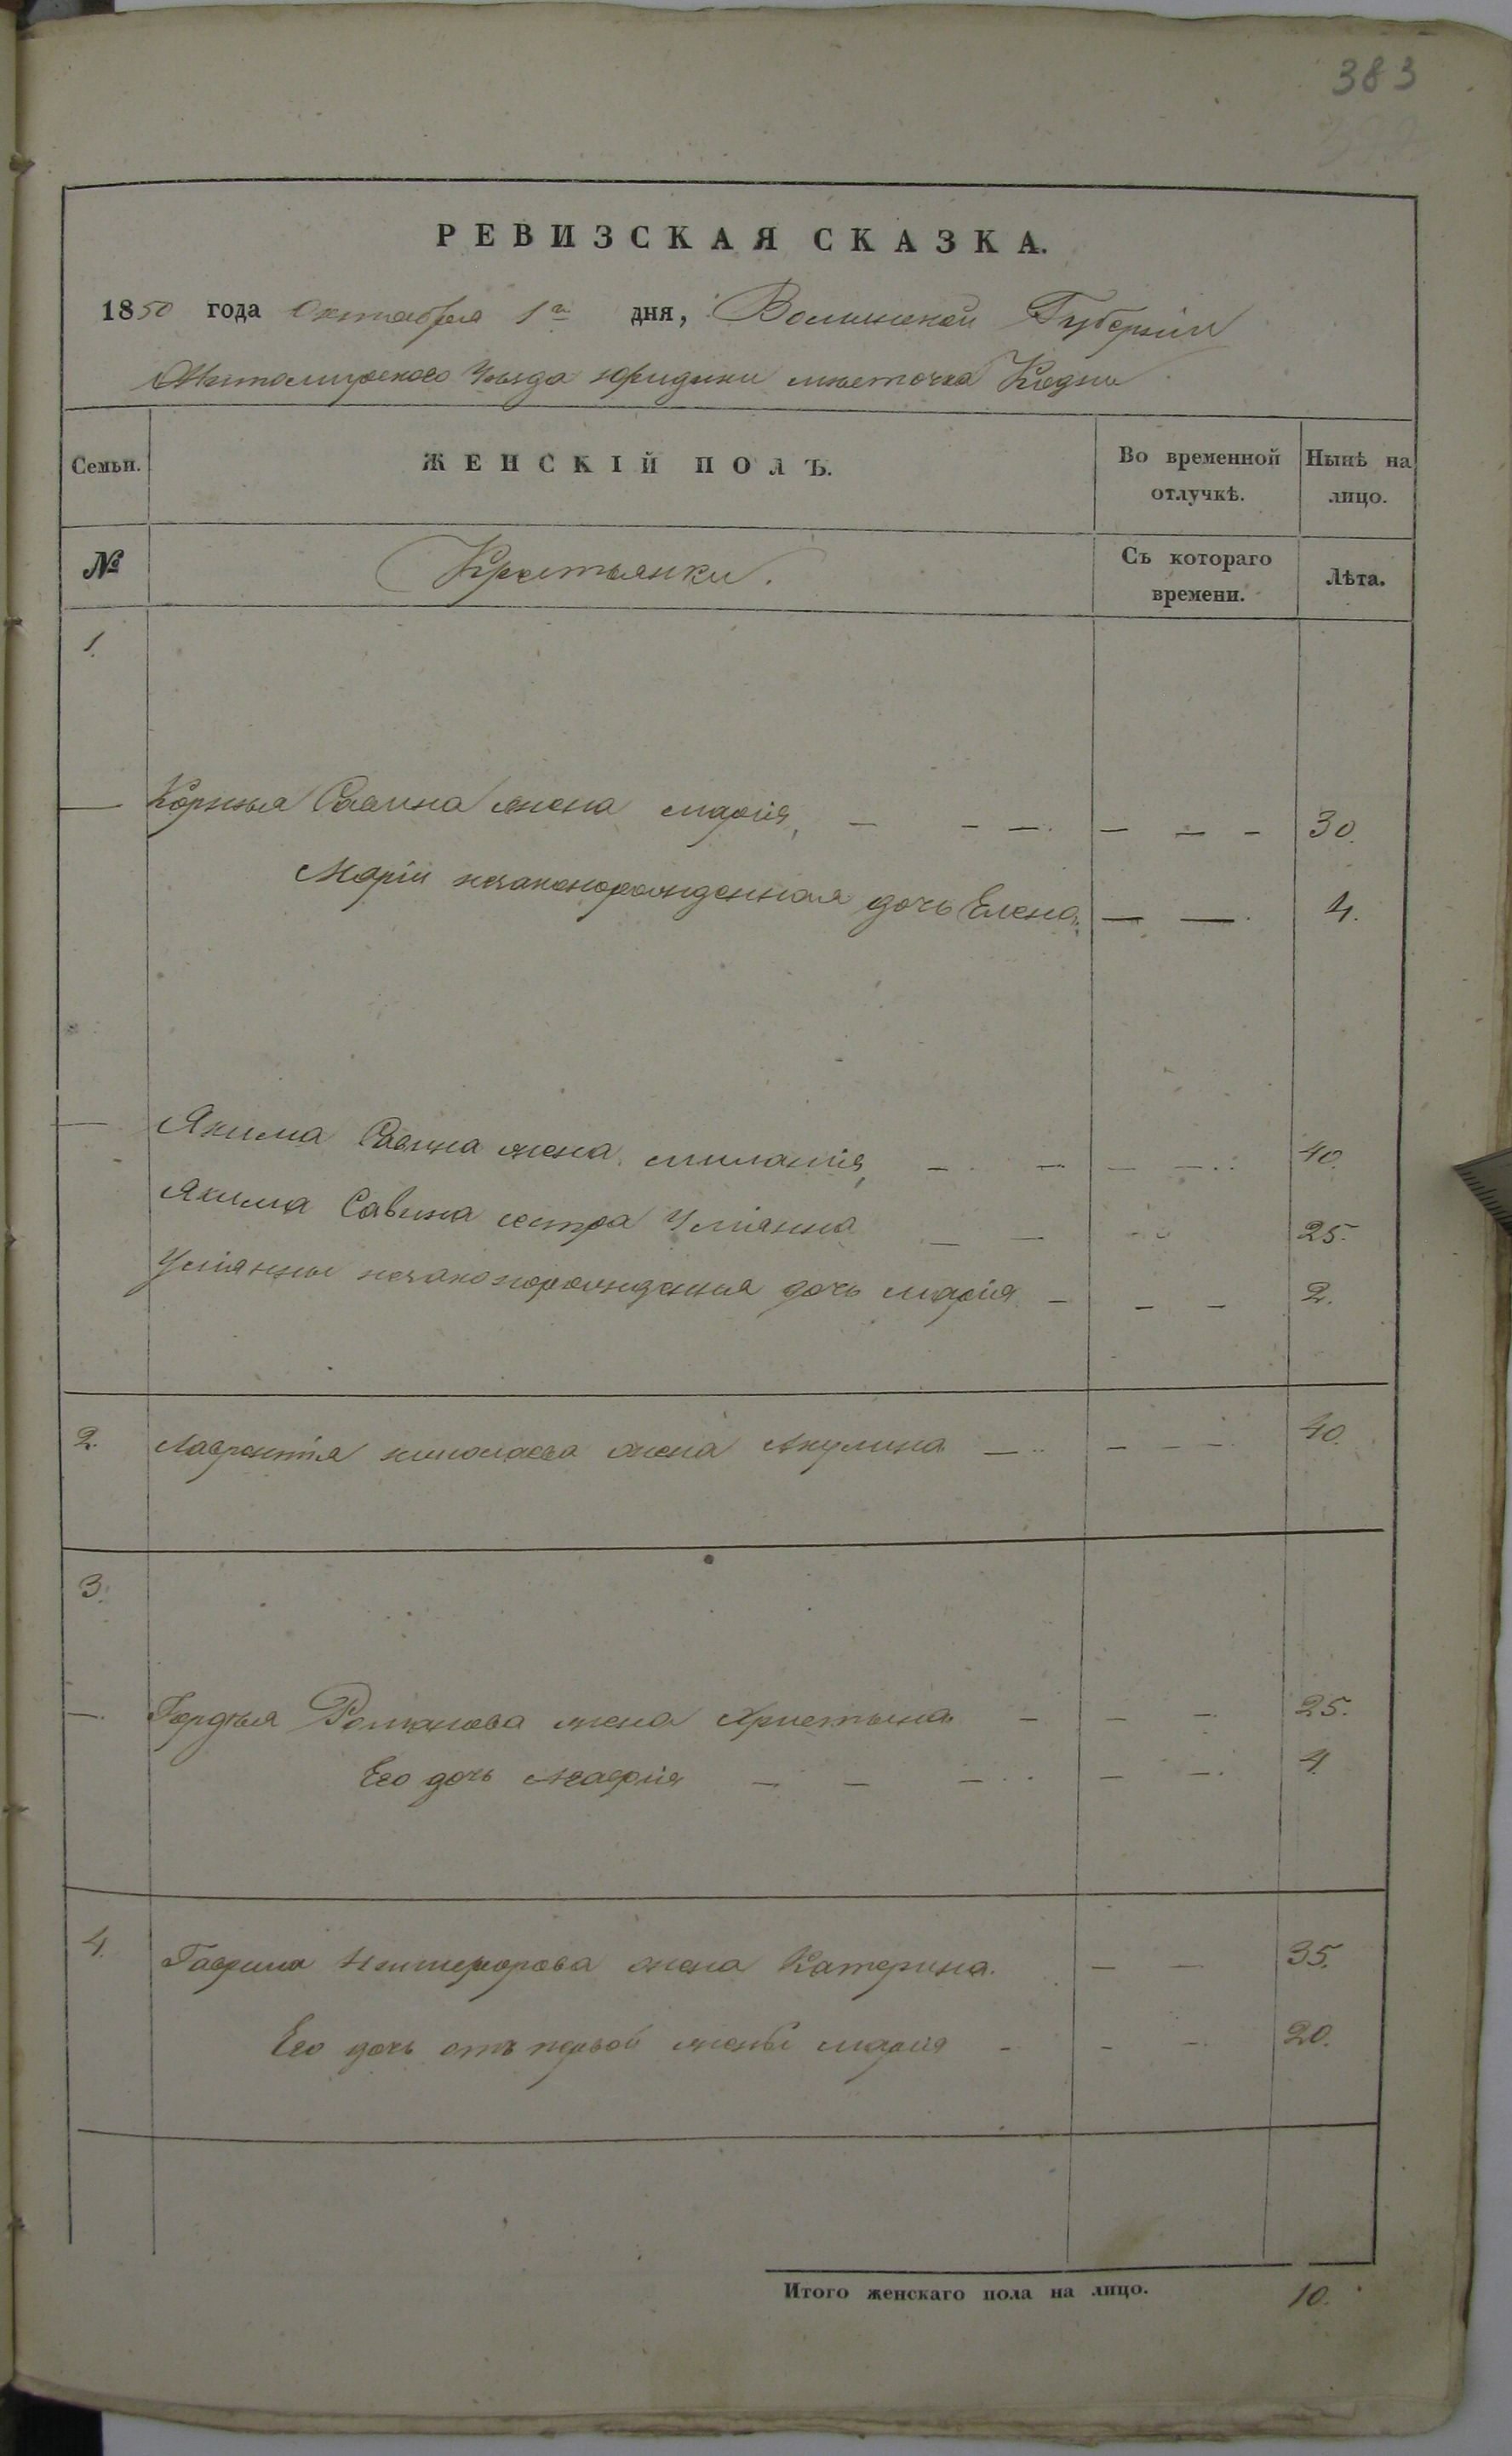 383
РЕВИЗСКАЯ СКАЗКА.
1850 года Октября 1го дня, Волынской Губерніи
Житомирского Уѣзда юридики мѣсточка Кодни
Семьи. ЖЕНСКІЙ ПОЛЪ. Во временной отлучкѣ. Нынѣ на лицо.
№ Крестьянки. Съ котораго времени. Лѣта.
1.
— Корнѣя Савина жена марія, — — — — — — 30.
Маріи незаконорожденная дочь Елена. — — 4.
— Якима Савина жена миланія, — — — — 40.
Якима Савина сестра Уліянна — — 25.
Уліянны незаконорожденна дочь марія — — — 2.
2. Лаврентія николаева жена Акулина — — — — 40.
3.
— Гордѣя Романова жена Христына — — — 25.
Его дочь Мавріа — — — — — 4.
4. Гаврила Никифорова жена Катерина. — — 35.
Его дочь отъ первой жены марія — — — 20.
Итого женскаго пола на лицо. 10.